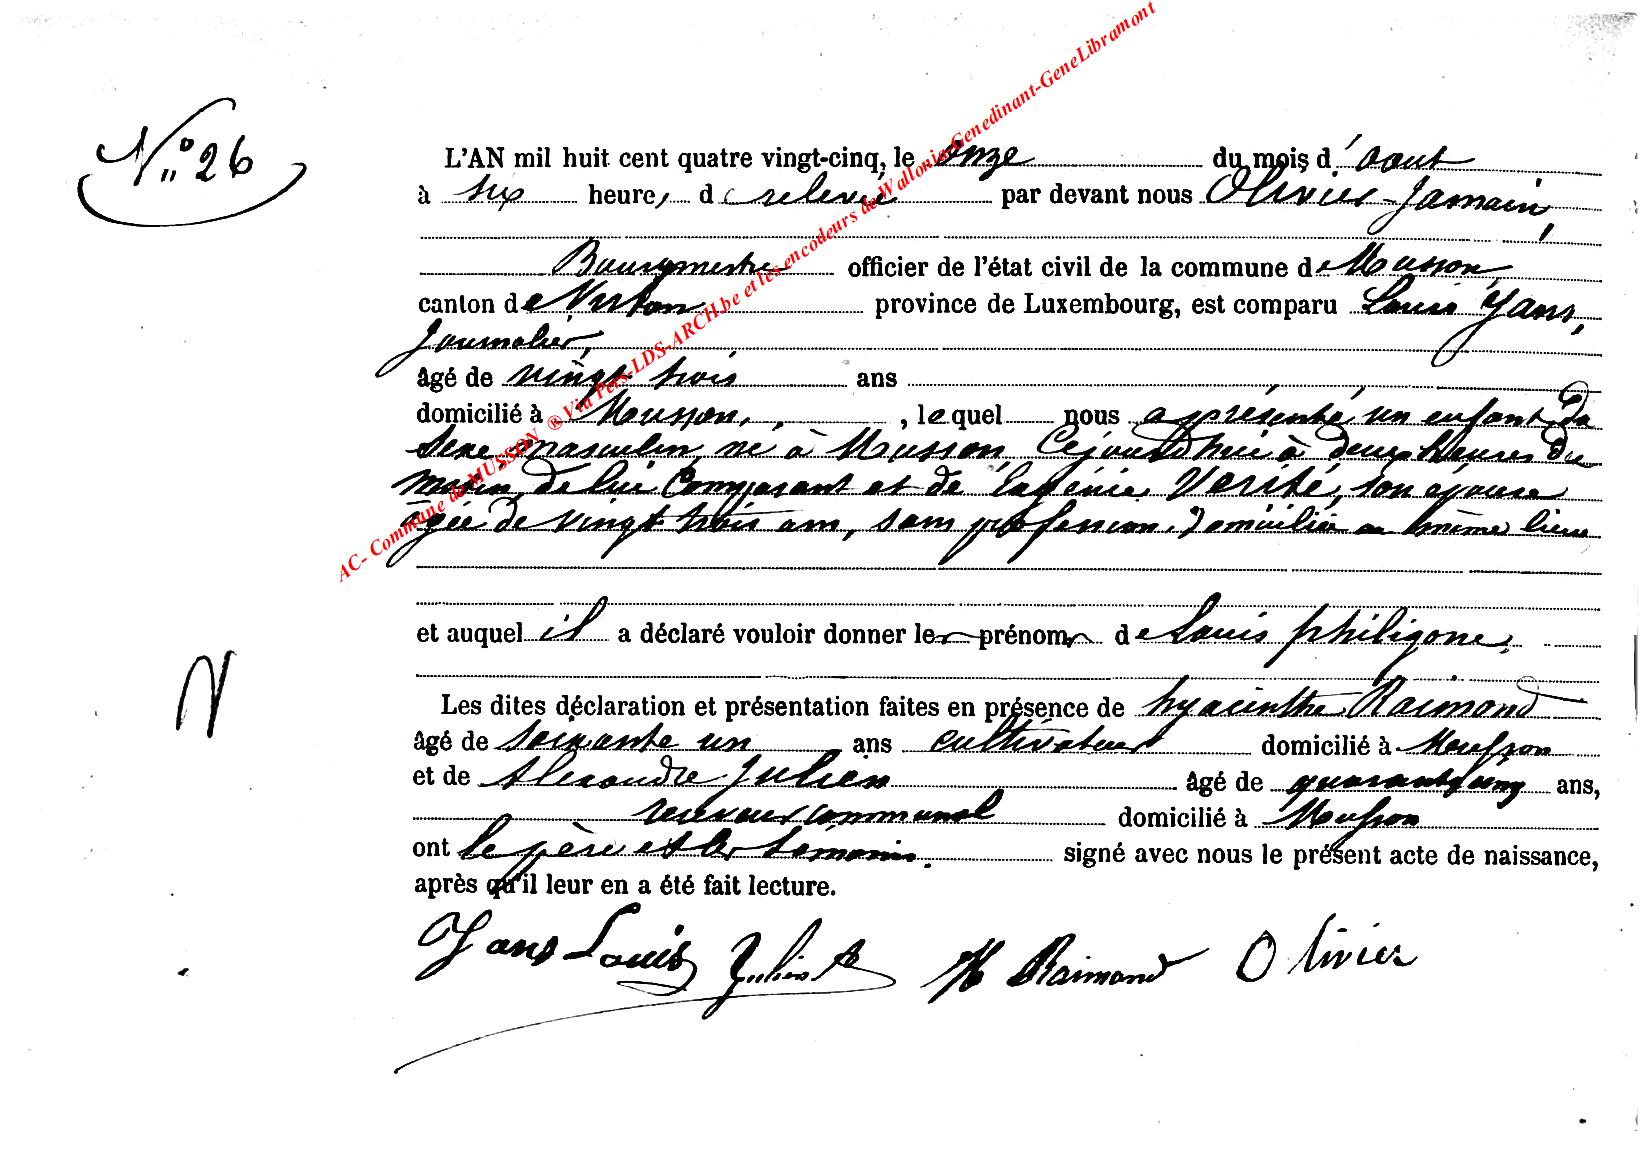 N° 26
L'AN mil huit cent quatre vingt-cinq, le onze du mois d'aout
à six heures, de relevée par devant nous Olivier-Jamain,
Bourgmestre officier de l'état civil de la commune de Musson,
canton de Virton province de Luxembourg, est comparu Louis Yans,
Journalier,
âgé de vingt trois ans
domicilié à Musson, , lequel nous a présenté un enfant du
Sexe masculin, né à Musson, Cejourdhui à deux heures du
matin, de lui Comparant et de Eugénie Verité, son épouse
agée de vingt trois ans, sans profession, Domiciliée au même lieu
et auquel il a déclaré vouloir donner le prénom de Louis philigone,
Les dites déclaration et présentation faites en présence de hyacinthe Raimond
âgé de Soixante un ans cultivateur domicilié à Musson
et de Alexandre Julien âgé de quarante cinq ans,
receveur communal domicilié à Musson
ont le père et les témoins. signé avec nous le présent acte de naissance,
après qu'il leur en a été fait lecture.
Yans Louis Julien A H Raimond Olivier
N
AC- Commune de MUSSON ® Via Pers-LDS-ARCH.be et les encodeurs de Wallonia-Genedinant-GeneLibramont